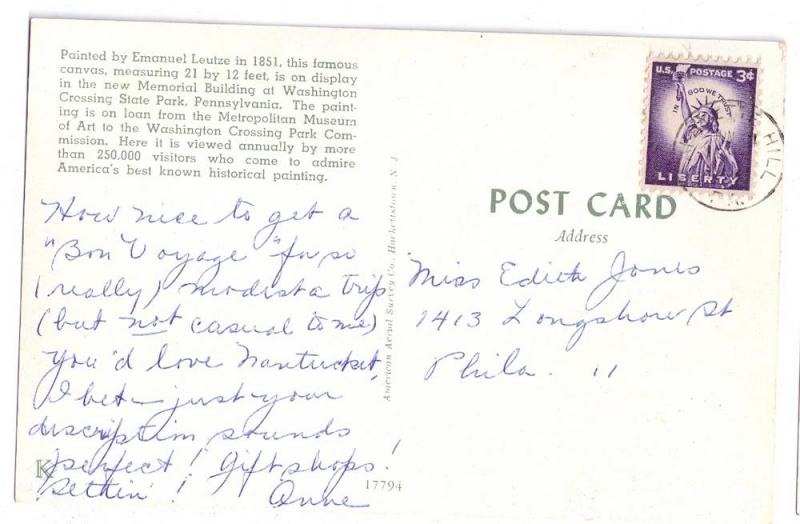 Painted by Emanuel Leutze in 1851, this famous
canvas, measuring 21 by 12 feet, is on display
in the new Memorial Building at Washington
Crossing State Park, Pennsylvania. The paint-
ing is on loan from the Metropolitan Museum
of Art to the Washington Crossing Park Com-
mission. Here it is viewed annually by more
than 250.000 visitors who come to admire
America's best known historical painting.
How nice to get a
"Bon Voyage" for so
(really) modest a trip
(but not casual to me)
You'd love Nantucket,
I bet – just your
description sounds
perfect! Gift shops!
! Settin'! Anne
K
17794
American Aerial Survey Co., Hackettstown, N. J.
U.S. POSTAGE 3¢
IN GOD WE TRUST
LIBERTY
HILL
POST CARD
Address
Miss Edith Jones
1413 Longshore St
Phila. 11